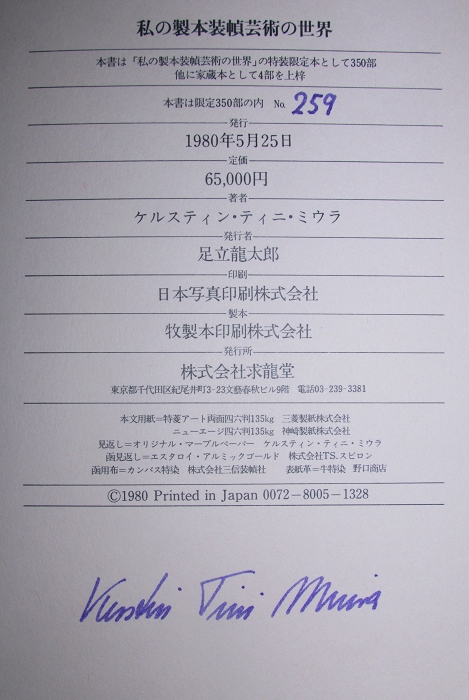 私の製本装幀芸術の世界
本書は「私の製本装幀芸術の世界」の特装限定本として350部
他に家蔵本として4部を上梓
本書は限定350部の内 No. 259
発行
1980年5月25日
定価
65,000円
著者
ケルスティン・ティニ・ミウラ
発行者
足立龍太郎
印刷
日本写真印刷株式会社
製本
牧製本印刷株式会社
発行所
株式会社求龍堂
東京都千代田区紀尾井町3-23文藝春秋ビル9階 電話03-239-3381
本文用紙=特菱アート両面四六判135kg 三菱製紙株式会社
ニューエージ四六判135kg 神崎製紙株式会社
見返し=オリジナル・マーブルペーパー ケルスティン・ティニ・ミウラ
函見返し=エスタロイ・アルミックゴールド 株式会社TS.スピロン
函用布=カンバス特染 株式会社三信装幀社 表紙革=牛特染 野口商店
©1980 Printed in Japan 0072-8005-1328
Kerstin Tini Miura